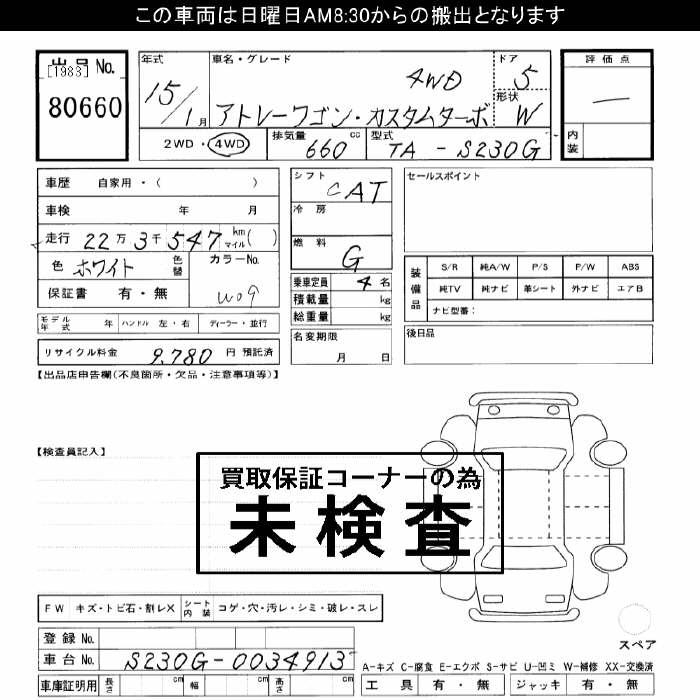 この車両は日曜日AM8:30からの搬出となります
出品 No.
[1983]
80660
年式 車名・グレード ドア 評価点
4WD 5
15/1月 形状
アトレーワゴン・カスタムターボ W
—
2WD・4WD 排気量 660 cc 型式 TA - S230G 内装
車歴 自家用・( )
車検 年 月
走行 22万3千547 km マイル( )
色 ホワイト 色替 カラーNo.
保証書 有・無 W09
モデル年式 年 ハンドル 左・右 ディーラー・並行
リサイクル料金 9,780 円 預託済
シフト CAT
冷房
燃料 G
乗車定員 4 名
積載量 kg
総重量 kg
名変期限
月 日
セールスポイント
装備品 S/R 純A/W P/S P/W ABS
純TV 純ナビ 革シート 外ナビ エアB
ナビ型番:
後日品
【出品店申告欄(不良箇所・欠品・注意事項等)】
【検査員記入】
買取保証コーナーの為
未検査
FW キズ・トビ石・割レX シート内装 コゲ・穴・汚レ・シミ・破レ・スレ
登録 No.
車台 No. S230G-0034913
車庫証明用 長さ cm 幅 cm 高さ cm
スペア
A-キズ C-腐食 E-エクボ S-サビ U-凹ミ W-補修 XX-交換済
工具 有・無 ジャッキ 有・無